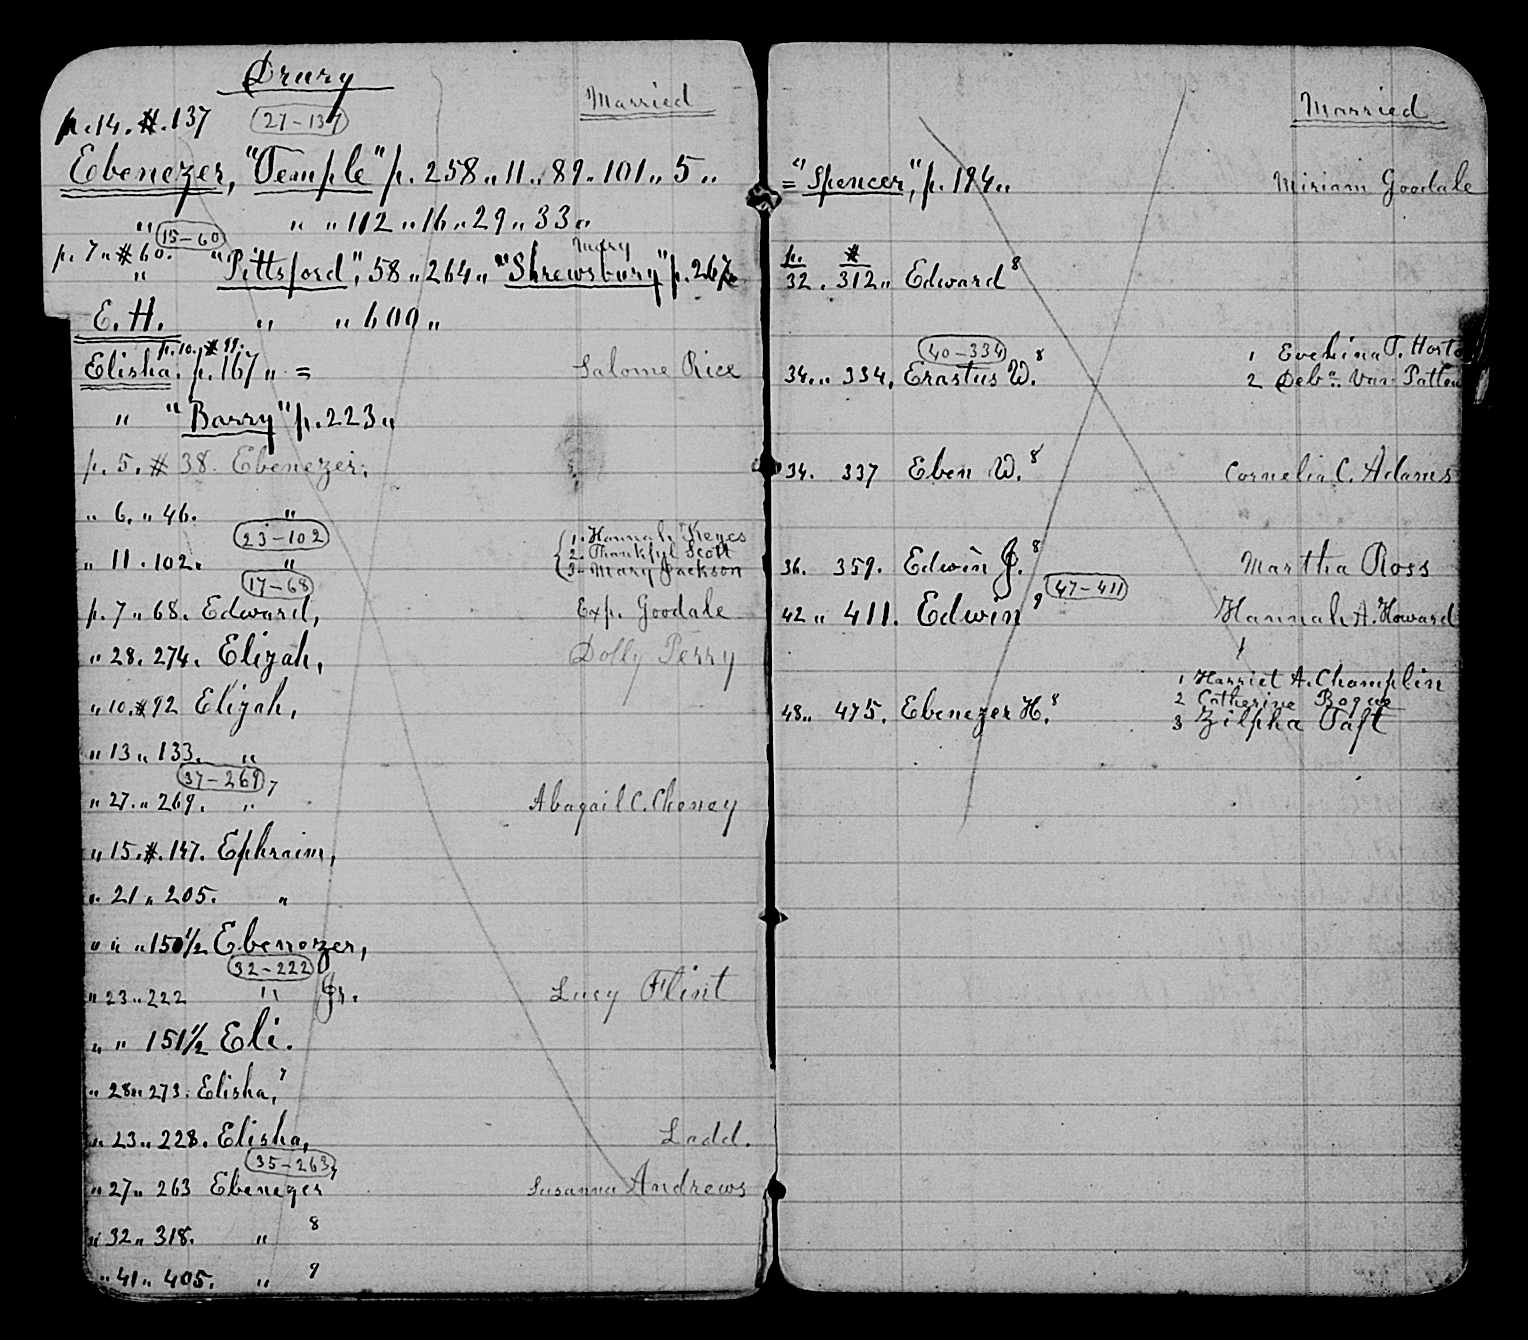 Drury
Married
p. 14. #. 137 (27-137)
Ebenezer, "Temple" p. 258 „ 11 „ 89 „ 101 „ 5 „
„ „ „ 112 „ 16 „ 29 „ 33 „
(15-60)
p. 7 „ #60. Mary
„ "Pittsford", 58 „ 264 „ "Shrewsbury" p. 267
E. H. „ „ 600 „
p. 10. # 99.
Elisha. p. 167 „ = Salome Rice
„ "Barry" p. 223 „
p. 5. # 38. Ebenezer,
„ 6. „ 46. „
(23-102) 1. Hannah Keyes
2. Thankful Scott
„ 11. 102. „ 3- Mary Jackson
(17-68)
p. 7 „ 68. Edward, Exp. Goodale
„ 28. 274. Elizah, Dolly Perry
„ 10. #92 Elijah,
„ 13 „ 133. „
(37-269)
„ 27. „ 269. „ 7 Abagail C. Cheney
„ 15. #. 147. Ephraim,
„ 21 „ 205. „
„ „ „ 150½ Ebenezer,
(32-222)
„ 23 „ 222 „ Jr. Lucy Flint
„ „ 151½ Eli.
„ 28 „ 273. Elisha, 7
„ 23 „ 228. Elisha, Ladd.
(35-263)
„ 27 „ 263 Ebenezer 7 Susanna Andrews
„ 32 „ 318. „ 8
„ 41 „ 405. „ 9
Married
= "Spencer", p. 194 „ Miriam Goodale
p. #
32. 312 „ Edward 8
(40-334) 1 Evelina T. Horto
34. „ 334, Erastus W. 8 2 Deb^a Van Patten
34. 337 Eben W. 8 Cornelia C. Adams
36. 359. Edwin J. 8 Martha Ross
(47-411)
42 „ 411. Edwin 9 Hannah A. Howard
1 Harriet A. Champlin
2 Catherine Bogue
48 „ 475. Ebenezer H. 8 3 Zilpha Taft